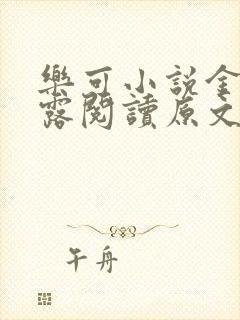 樂可小說金
露閱讀原文
午舟